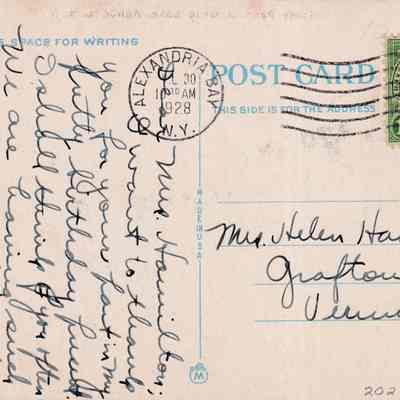 S SPACE FOR WRITING
ALEXANDRIA BAY
30
10 30 AM
1928
N.Y.
POST CARD
THIS SIDE IS FOR THE ADDRESS
MADE IN USA
Mrs. Hamilton;
I want to thank
you for your part in my
birthday
I shall think of you often
We are having such
Mrs. Helen Ha
Grafton
Vermo
M
202